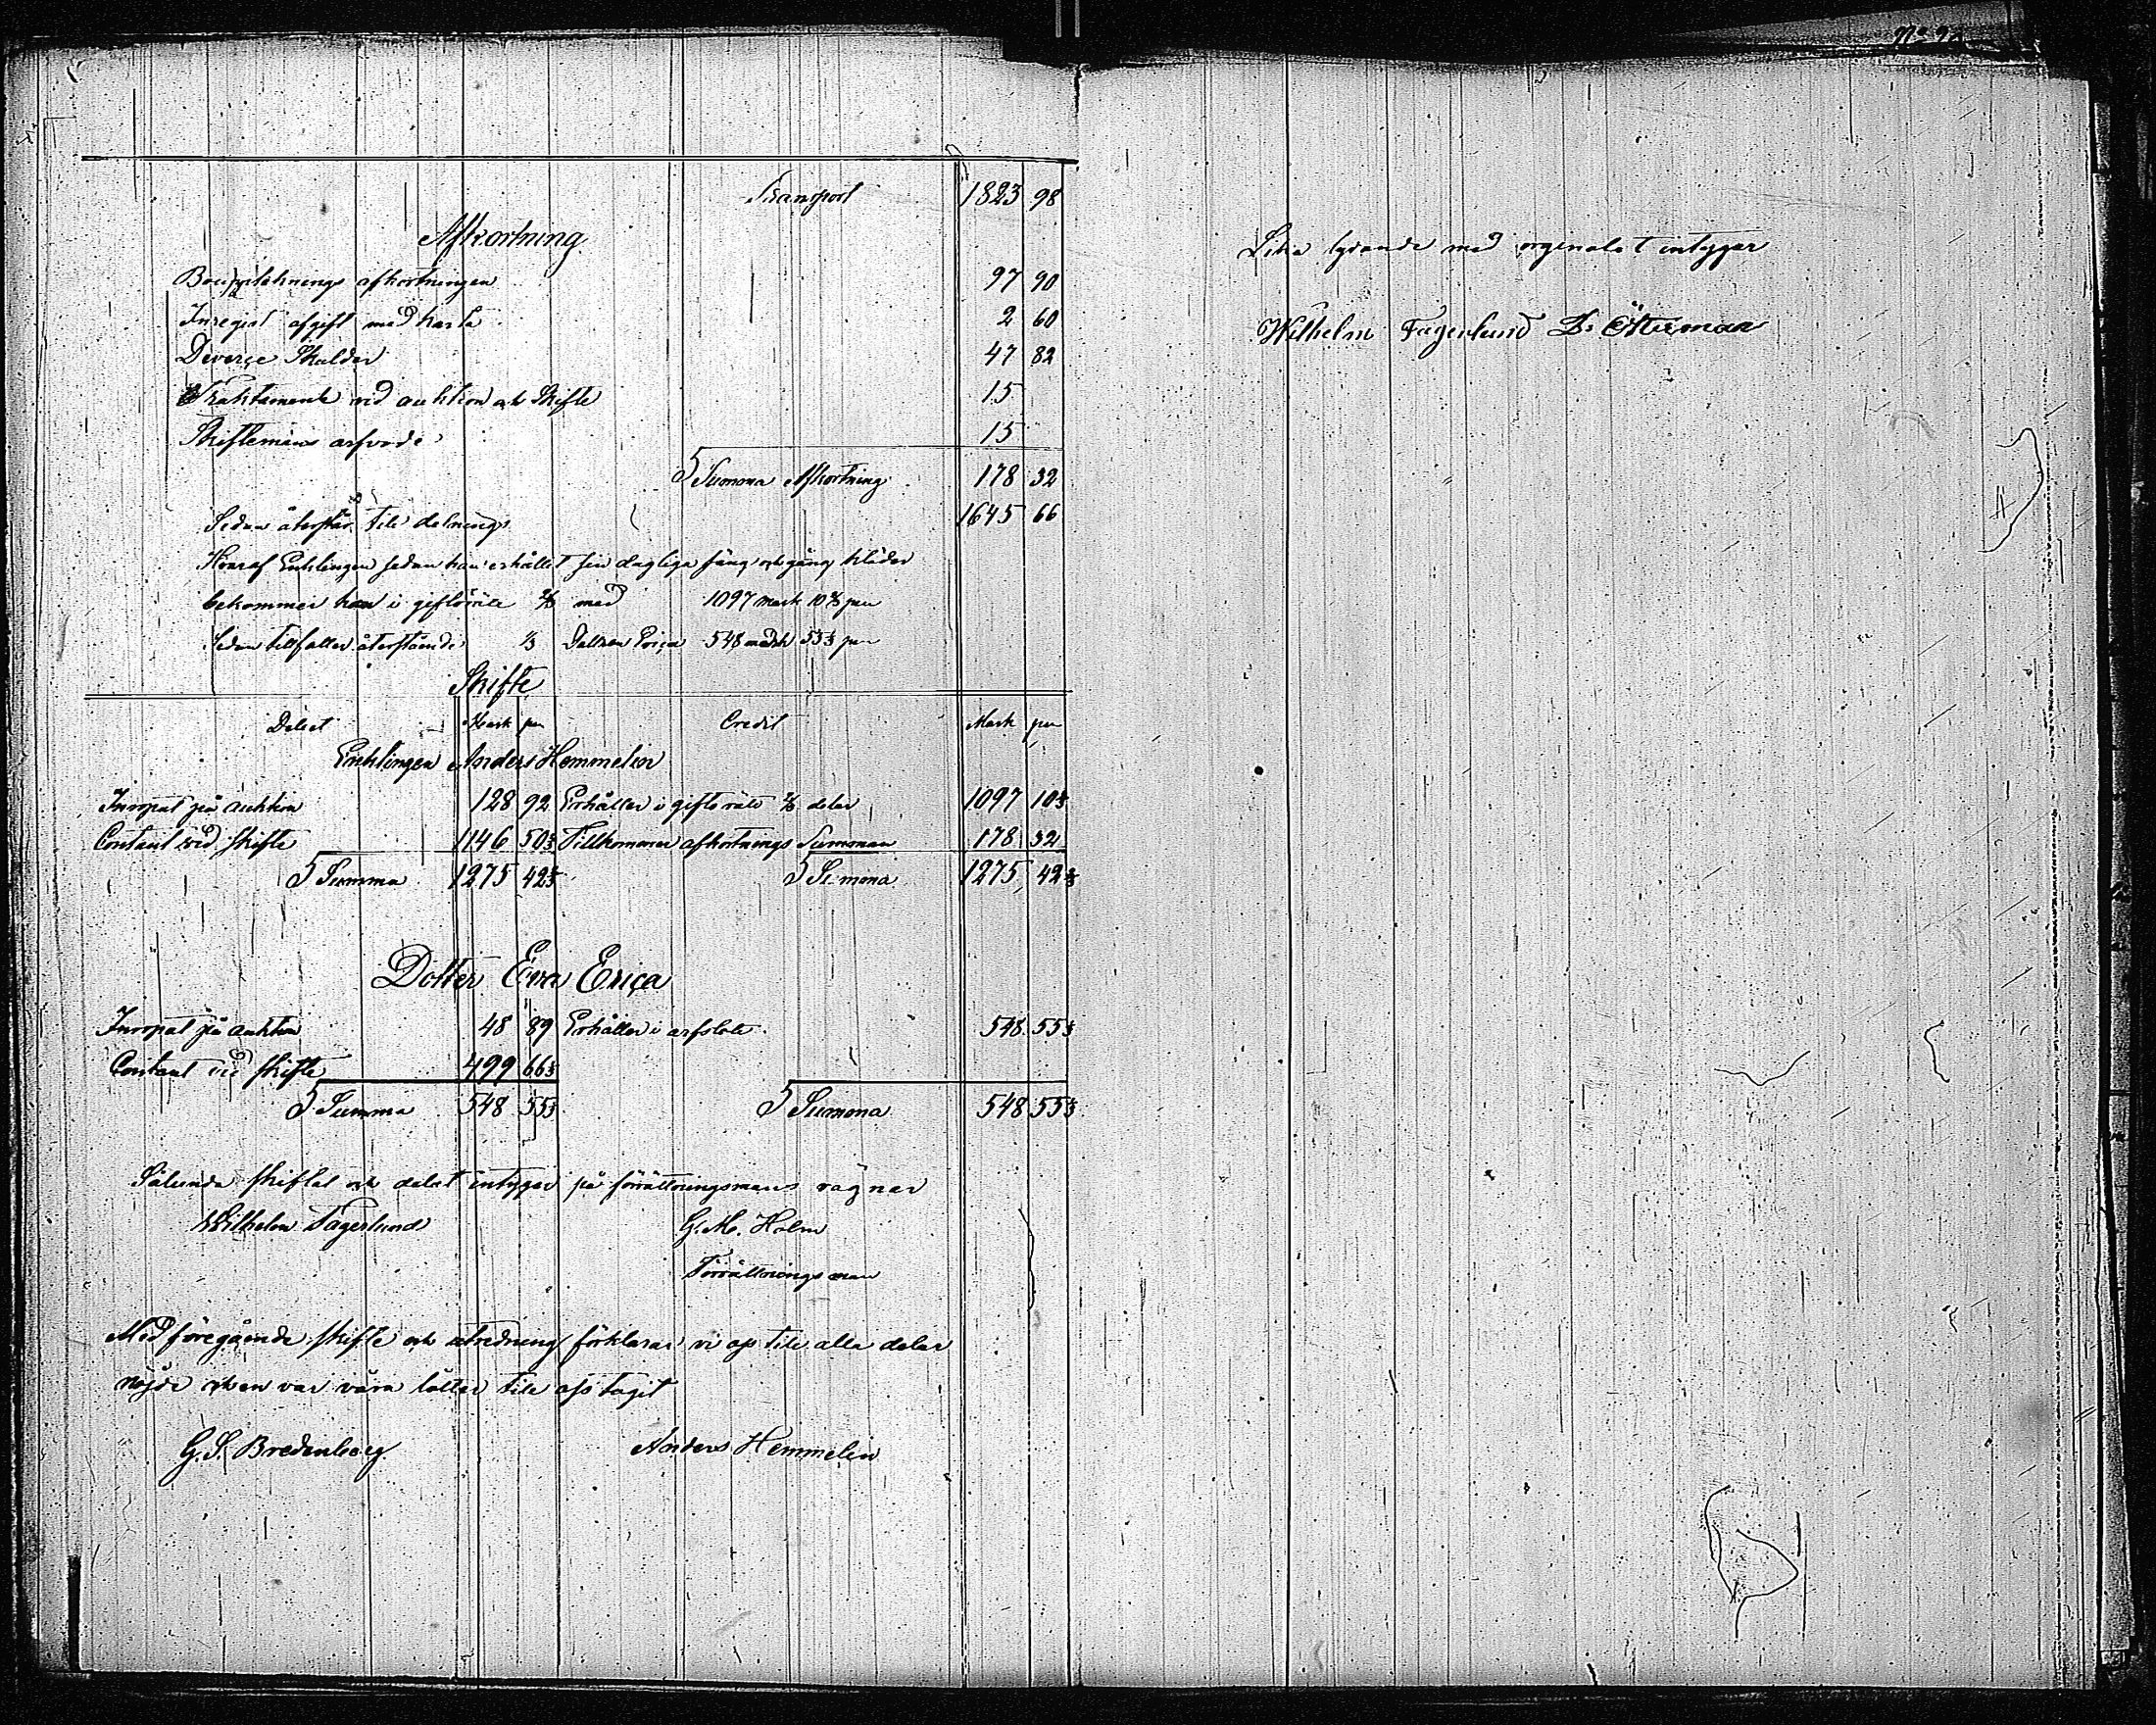 Transport 1823 98
Afkortning
Bouppteknings afkortningen 97 90
Inregist afgift med karta 2 60
Diverçe Skulder 47 82
Traktamente vid auktion och Skifte 15
Skiftemäns arfvode 15
Summa Afkortning 178 32
Sedan återstår till delnings 1645 66
Hvaraf Enklingen sedan han erhållit sin dagliga säng och gång kläder
bekommer han i giftorätt 2/3 med 1097 mark 10 2/3 pen
Sedan tillfaller återstående 1/3 Dottren Eriça 548 mark 55 1/3 pen
Skifte
Debet Mark pen Credit Mark pen
Enklingen Anders Hemmelin
Inropat på auktion 128 92 Erhåller i giftorätt 2/3 delar 1097 10 2/3
Contant vid skifte 1146 50 2/3 Tillkommer afkortnings Summan 178 32
Summa 1275 42 2/3 Summa 1275 42 2/3
Dotter Eva Eriça
Inropat på auktion 48 89 Erhåller i arfslott 548 55 1/3
Contant vid skifte 499 66 1/3
Summa 548 55 1/3 Summa 548 55 1/3
Sålunda skiftat och delat intygar på förrättningsmans vägnar
Wilhelm Fagerlund G. M. Holm
Förrättnings man
Med föregående skifte och utredning förklarar vi oss till alla delar
nöjde och en var våra lotter till oss tagit
G. S. Bredenberg Anders Hemmelin
Lika lydande med orginalet intygar
Wilhelm Fagerlund Österman